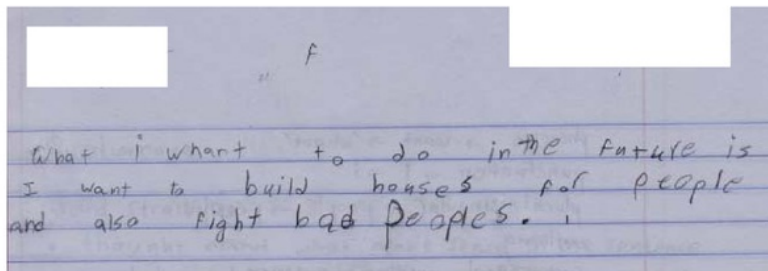 F
What i whant to do in the future is
I want to build houses for people
and also fight bad Peoples.